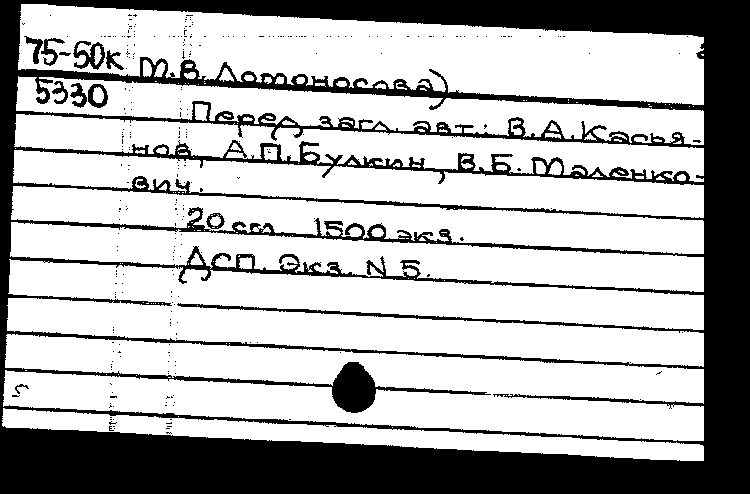 75-50к М.В. Ломоносова)
5330
Перед загл. авт.: В.А. Касья-
нов, А.П. Булкин, В.Б. Маленко-
вич.
20 см. 1500 экз.
ДСП. Экз. N 5.